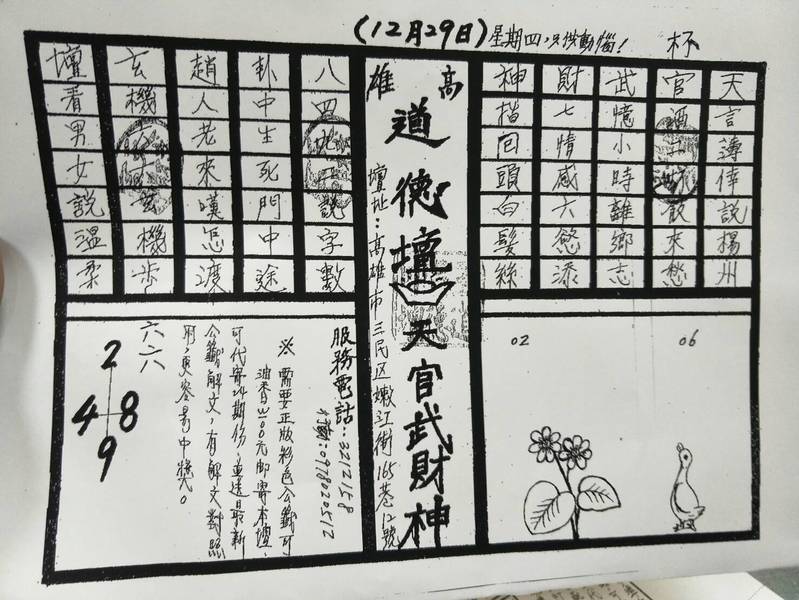 (12月29日)星期四,只供動惱!
杯
天言薄倖說楊州
官酒來飲來愁
武憶小時離鄉志
財七情感六慾添
神指回頭白髮絲
高雄
道德壇
天官武財神
壇址:高雄市三民区嫩江街165巷12號
八四說字數
卦中生死門中途
趙人老來嘆怎渡
玄機玄機步
壇看男女說溫柔
02
06
服務電話:3212158
0978020512
※需要正版彩色公籤可
油香100元即寄本壇,
可代寄24期份,並送最新
公籤解文,有解文對照
附,更容易中獎。
六六八
2
4 8
9